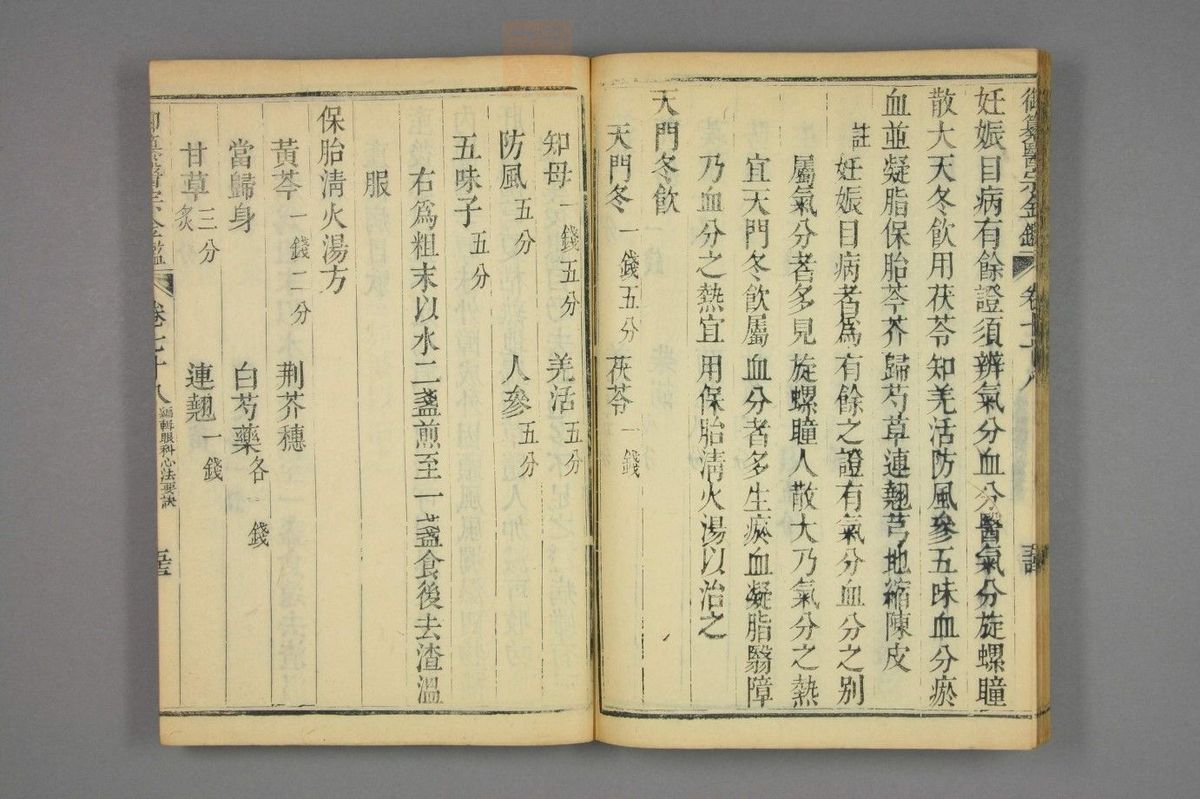 御纂醫宗金鑑 卷七十八
妊娠目病有餘證須辨氣分血分醫氣分旋螺瞳
散大天冬飲用茯苓知羌活防風參五味血分瘀
血並凝脂保胎芩芥歸芍草連翹芎地縮陳皮
註 妊娠目病者為有餘之證有氣分血分之別
屬氣分者多見旋螺瞳人散大乃氣分之熱
宜天門冬飲屬血分者多生瘀血凝脂翳障
乃血分之熱宜用保胎清火湯以治之
天門冬飲
天門冬一錢五分 茯苓一錢
知母一錢五分 羌活五分
防風五分 人參五分
五味子五分
右爲粗末以水二盞煎至一盞食後去渣溫
服
保胎清火湯方
黃芩一錢二分 荆芥穗
當歸身 白芍藥各一錢
甘草炙三分 連翹一錢
御纂醫宗金鑑 卷七十八 編輯眼科心法要訣